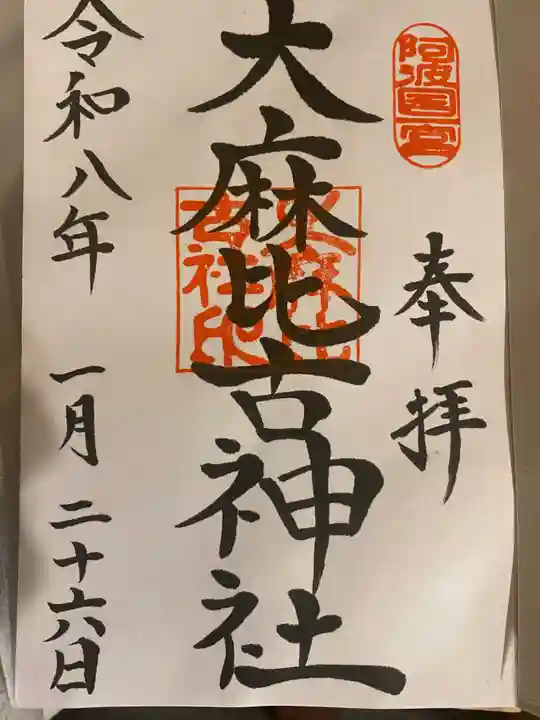 阿波国一宮
奉拝
大麻比古神社
大麻比古社印
令和八年 一月 二十六日